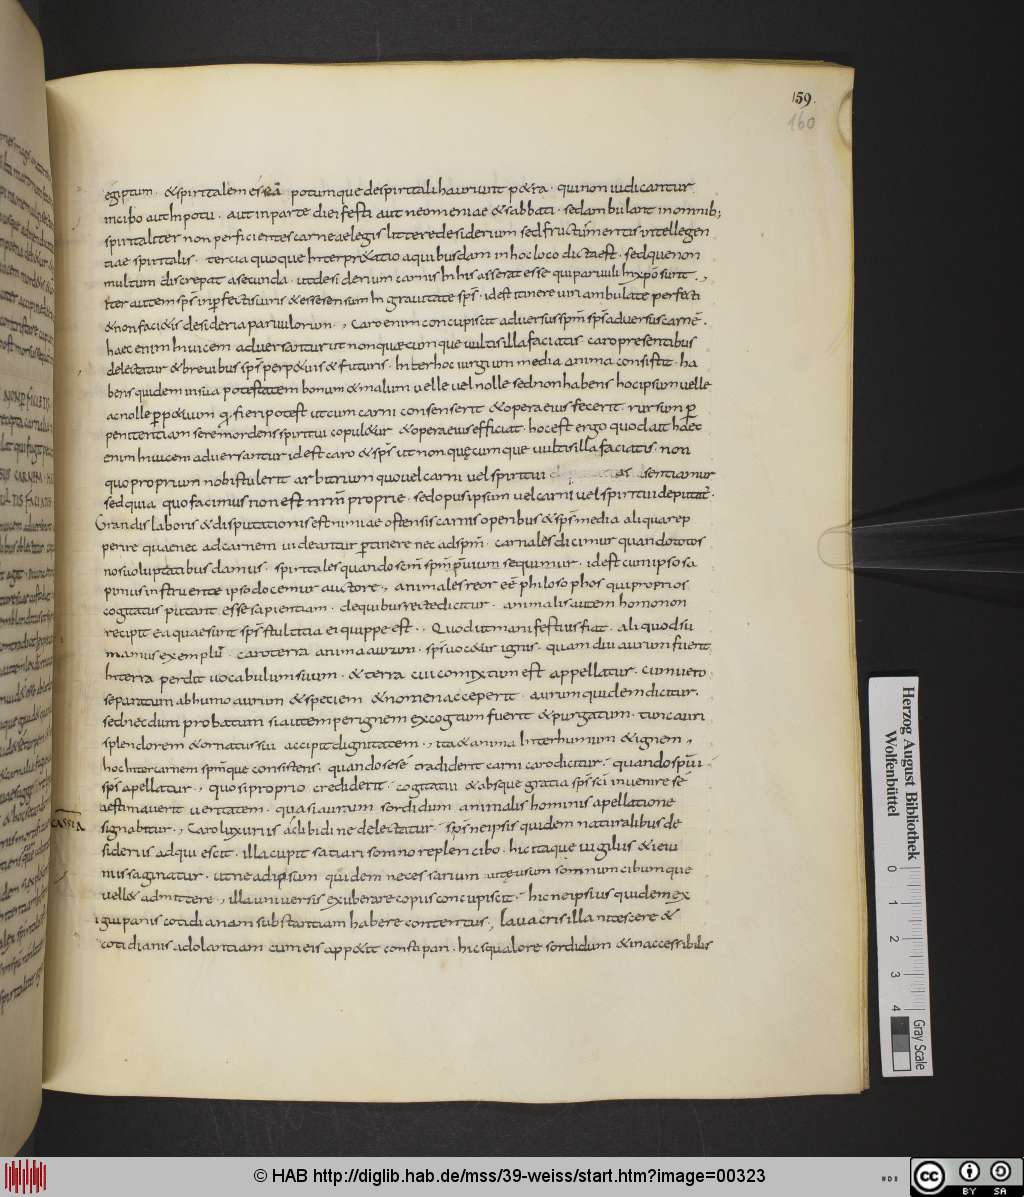 159.
160
egiptum · & spiritalem escā potumque de spiritali hauriunt p&ra · qui non iudicantur
in cibo aut in potu · aut in parte diei festi aut neomeniae & sabbati · sed ambulant in omnib;
spiritaliter non perficientes carneae legis littere desiderium sed fructum mentis intellegen
tiae spiritalis · tercia quoque interpr&atio a quibusdam in hoc loco dicta est · sed que non
multum discrepat a secunda · ut desiderium carnis in his asserat esse qui paruuli in xpō sunt ·,
Iter autem sp̄s in perfectis uiris & esse sensum in grauitate sp̄s · id est itinere uiri ambulate perfecti
& non faci&is desideria paruulorum ·, Caro enim concupiscit aduersus sp̄m sp̄s aduersus carnē ·
haec enim inuicem aduersantur ut non quęcumque uultis illa faciatis · caro presentibus
delectatur & breuibus sp̄s perp&uis & futuris · Inter hoc iurgium media anima consistit · ha
bens quidem in sua potestatem bonum & malum uelle uel nolle sed non habens hoc ipsum uelle
ac nolle p̱p&uum q̨ fieri potest ut cum carni consenserit & opera eius fecerit · rursum p̱
penitentiam se remordens spiritui copul&ur · & opera eius efficiat · hoc est ergo quod ait haec
enim inuicem aduersantur id est caro & sp̄s ut non quęcumque uultis illa faciatis · non
quo proprium nobis tulerit arbitrium quo uel carni uel spiritui sentiamur
sed quia quo facimus non est nr̄m proprie · sed opus ipsum uel carni uel spiritui deputat̄ ·
Grandis laboris & disputationis est nimiae ostensis carnis operibus & sp̄s media aliqua rep
perire quae nec ad carnem uideantur p̱tinere nec ad sp̄m · carnales dicimur quando totos
nos uoluptatibus damus · spiritales quando sc̄m sp̄m p̄uium sequimur · id est cum ipso sa
pimus instruente ipso docemur auctore ·, animales reor eē philosophos qui proprios
cogitatus putant esse sapientiam · de quibus recte dicitur · animalis autem homo non
recipit ea quae sunt sp̄s stultitia ei quippe est ·, Quod ut manifestius fiat · aliquod su
mamus exemplū · caro terra anima aurum · sp̄s uoc&ur ignis · quam diu aurum fuerit
In terra perdit uocabulum suum · & terra cui comixtum est appellatur · cum uero
separatum ab humo aurum & speciem & nomen acceperit · aurum quidem dicitur ·
sed necdum probatum si autem per ignem excoctum fuerit & purgatum · tunc auri
splendorem & ornatus sui accipit dignitatem ·, ita & anima inter humum & ignem ,
hoc inter carnem sp̄mque consistens · quando sese tradiderit carni caro dicitur · quando sp̄ui
sp̄s apellatur ·, quo si proprio crediderit · cogitatui & absque gratia sp̄s sc̄i inuenire sē
aestimauerit ueritatem · quasi aurum sordidum animalis hominis apellatione
signabitur ·, Caro luxuriis ac libidine delectatur · sp̄s ne ipsis quidem naturalibus de
sideriis adquiescit · illa cupit satiari somno repleri cibo · hic itaque uigiliis & ieiu
niis saginatur · ut ne adipsum quidem necessarium utę usum somnium cibumque
uell& admittere , illa uniuersis exuberare copiis concupiscit · hic ne ipsius quidem ex
igui panis cotidianam substantiam habere contentus , Lauacris illa nitescere &
cotidianis adolantiam cum eis app&it constipari · hic squalore sordidum & inaccessibilis
CASSIA
Herzog August Bibliothek
Wolfenbüttel
0
1
2
3
4
Gray Scale
© HAB http://diglib.hab.de/mss/39-weiss/start.htm?image=00323
cc
BY SA